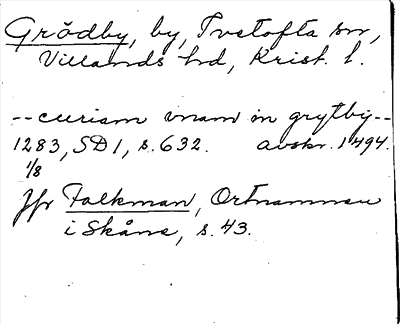 Grödby, by, Tvetofta sn,
Villands hd, Krist. l.
--curiam unam in grytby--
1283, SD1, s. 632. avskr. 1494.
1/8
Jfr Falkman, Ortnamnen
i Skåne, s. 43.